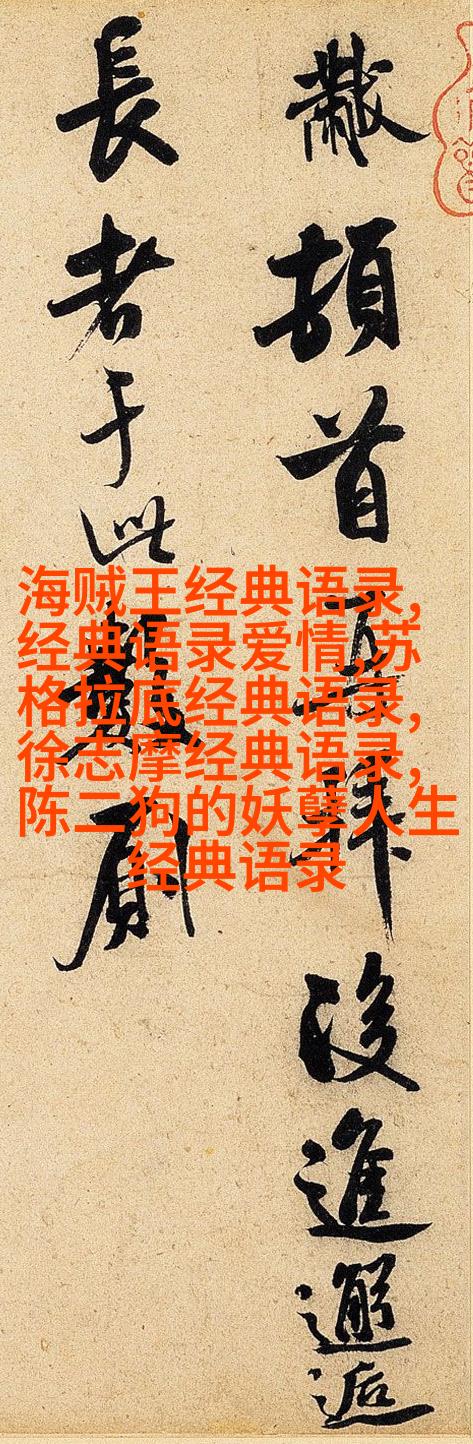 黻頓首再拜後進邂逅
長者于此數廁
海贼王经典语录,
经典语录爱情,苏
格拉底经典语录,
徐志摩经典语录,
陈二狗的妖孽人生
经典语录